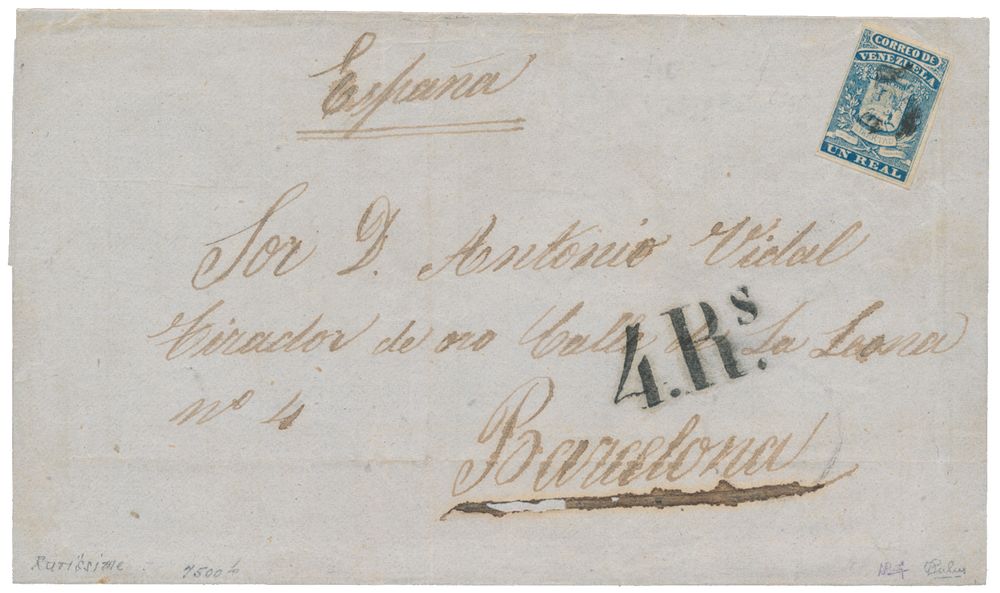 España
CORREO DE
VENEZUELA
LIBERTAD
UN REAL
Sor D. Antonio Vidal
Tirador de oro Calle La Leona
4. Rs.
nº 4
Barcelona
Rarissime 7500